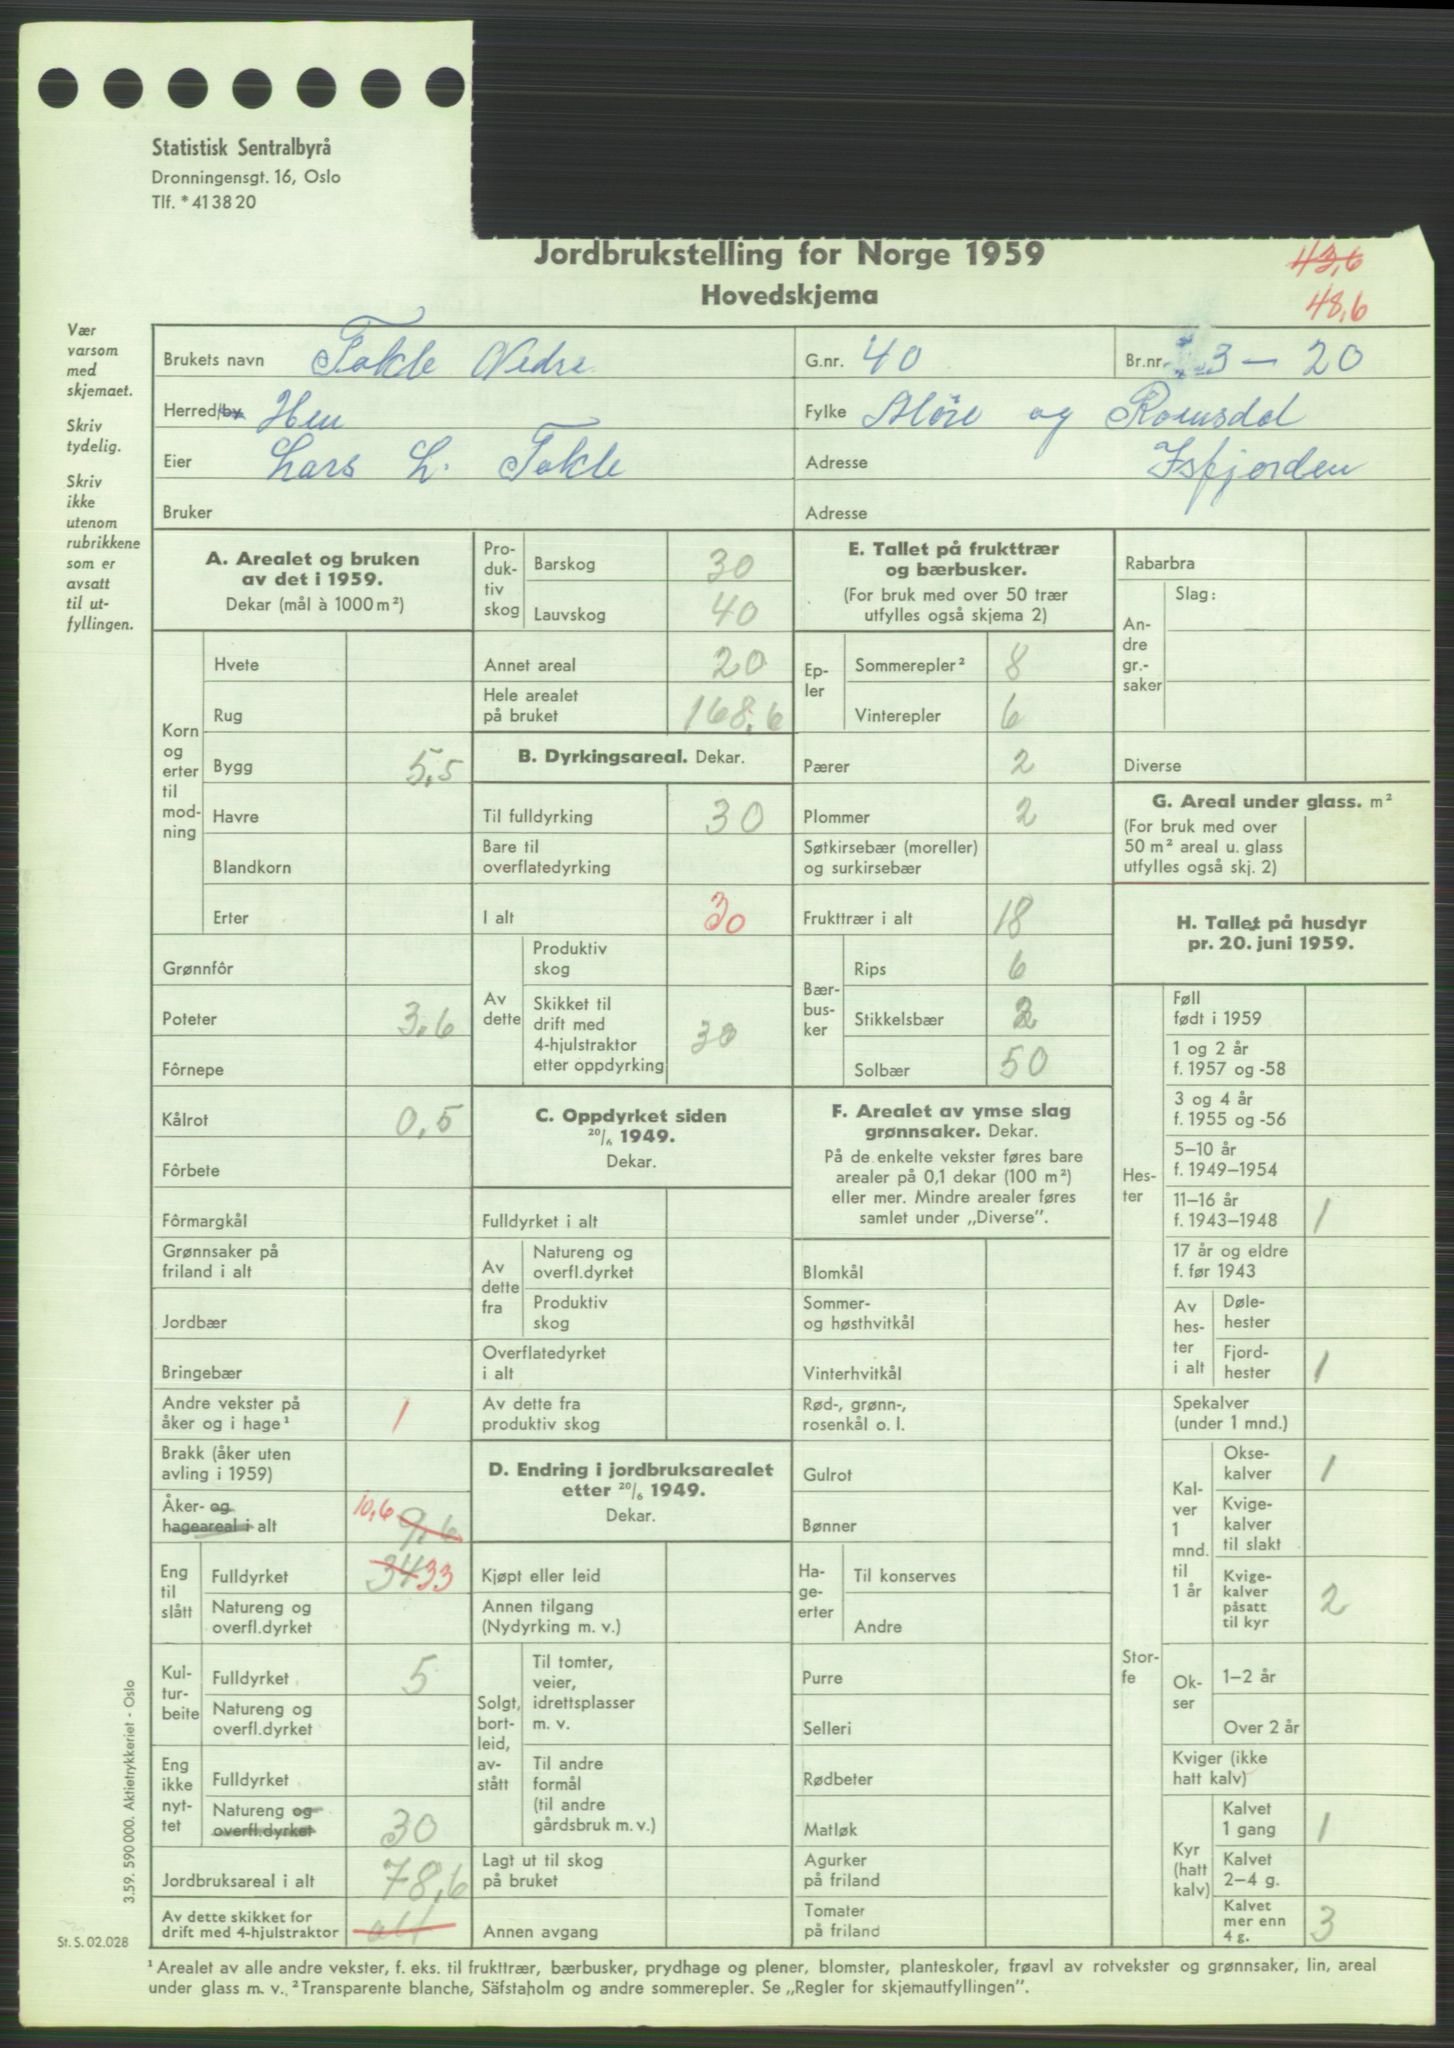 Statistisk Sentralbyrå
Dronningensgt. 16, Oslo
Tlf. * 41 38 20
Jordbrukstelling for Norge 1959
Hovedskjema
43,6
48,6
Vær
varsom
med
skjemaet.
Skriv
tydelig.
Skriv
ikke
utenom
rubrikkene
som er
avsatt
til ut-
fyllingen.
Brukets navn Tokle Nedre G.nr. 40 Br.nr. 3 – 20
Herred/by Hen Fylke Møre og Romsdal
Eier Lars L. Tokle Adresse Isfjorden
Bruker Adresse
A. Arealet og bruken
av det i 1959.
Dekar (mål à 1000 m²)
Korn
og
erter
til
mod-
ning
Hvete
Rug
Bygg 5,5
Havre
Blandkorn
Erter
Grønnfôr
Poteter 3,6
Fôrnepe
Kålrot 0,5
Fôrbete
Fôrmargkål
Grønnsaker på
friland i alt
Jordbær
Bringebær
Andre vekster på
åker og i hage¹ 1
Brakk (åker uten
avling i 1959)
Åker- og
hageareal i alt 10,6 9,6
Eng
til
slått
Fulldyrket 34 33
Natureng og
overfl.dyrket
Kul-
tur-
beite
Fulldyrket 5
Natureng og
overfl.dyrket
Eng
ikke
nyt-
tet
Fulldyrket
Natureng og
overfl.dyrket 30
Jordbruksareal i alt 78,6
Av dette skikket for
drift med 4-hjulstraktor alt
Pro-
duk-
tiv
skog
Barskog 30
Lauvskog 40
Annet areal 20
Hele arealet
på bruket 168,6
B. Dyrkingsareal. Dekar.
Til fulldyrking 30
Bare til
overflatedyrking
I alt 30
Av
dette
Produktiv
skog
Skikket til
drift med
4-hjulstraktor
etter oppdyrking 30
C. Oppdyrket siden
20/6 1949.
Dekar.
Fulldyrket i alt
Av
dette
fra
Natureng og
overfl.dyrket
Produktiv
skog
Overflatedyrket
i alt
Av dette fra
produktiv skog
D. Endring i jordbruksarealet
etter 20/6 1949.
Dekar.
Kjøpt eller leid
Annen tilgang
(Nydyrking m. v.)
Solgt,
bort-
leid,
av-
stått
Til tomter,
veier,
idrettsplasser
m. v.
Til andre
formål
(til andre
gårdsbruk m. v.)
Lagt ut til skog
på bruket
Annen avgang
E. Tallet på frukttrær
og bærbusker.
(For bruk med over 50 trær
utfylles også skjema 2)
Ep-
ler
Sommerepler² 8
Vinterepler 6
Pærer 2
Plommer 2
Søtkirsebær (moreller)
og surkirsebær
Frukttrær i alt 18
Bær-
bus-
ker
Rips 6
Stikkelsbær 2
Solbær 50
F. Arealet av ymse slag
grønnsaker. Dekar.
På de enkelte vekster føres bare
arealer på 0,1 dekar (100 m²)
eller mer. Mindre arealer føres
samlet under „Diverse”.
Blomkål
Sommer-
og høsthvitkål
Vinterhvitkål
Rød-, grønn-,
rosenkål o. l.
Gulrot
Bønner
Ha-
ge-
erter
Til konserves
Andre
Purre
Selleri
Rødbeter
Matløk
Agurker
på friland
Tomater
på friland
Rabarbra
An-
dre
gr.-
saker
Slag:
Diverse
G. Areal under glass. m²
(For bruk med over
50 m² areal u. glass
utfylles også skj. 2)
H. Tallet på husdyr
pr. 20. juni 1959.
Hes-
ter
Føll
født i 1959
1 og 2 år
f. 1957 og -58
3 og 4 år
f. 1955 og -56
5–10 år
f. 1949–1954
11–16 år
f. 1943–1948 1
17 år og eldre
f. før 1943
Av
hes-
ter
i alt
Døle-
hester
Fjord-
hester 1
Stor-
fe
Spekalver
(under 1 mnd.)
Kal-
ver
1
mnd.
til
1 år
Okse-
kalver 1
Kvige-
kalver
til slakt
Kvige-
kalver
påsatt
til kyr 2
Ok-
ser
1–2 år
Over 2 år
Kviger (ikke
hatt kalv)
Kyr
(hatt
kalv)
Kalvet
1 gang 1
Kalvet
2–4 g.
Kalvet
mer enn
4 g. 3
3.59. 590 000. Aktietrykkeriet - Oslo
St. S. 02.028
¹ Arealet av alle andre vekster, f. eks. til frukttrær, bærbusker, prydhage og plener, blomster, planteskoler, frøavl av rotvekster og grønnsaker, lin, areal
under glass m. v. ² Transparente blanche, Säfstaholm og andre sommerepler. Se „Regler for skjemautfyllingen”.